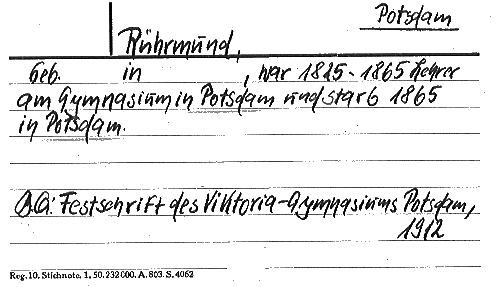 Potsdam
Rührmund,
Geb. in , war 1825-1865 Lehrer
am Gymnasium in Potsdam und starb 1865
in Potsdam.
Festschrift des Viktoria-Gymnasiums Potsdam,
1912
Reg.10. Stichnote. 1,50.232000. A. 803. S. 4062